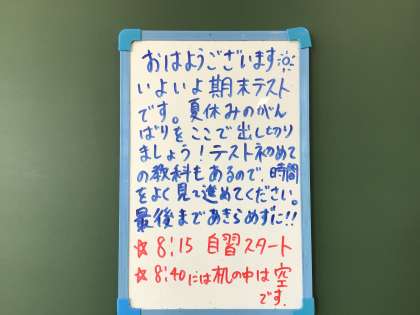 おはようございます
いよいよ期末テスト
です。夏休みのがん
ばりをここで出し切り
ましょう！テスト初めて
の教科もあるので、時間
をよく見て進めてください。
最後まであきらめずに!!
☆8:15 自習スタート
☆8:40には机の中は空
です.